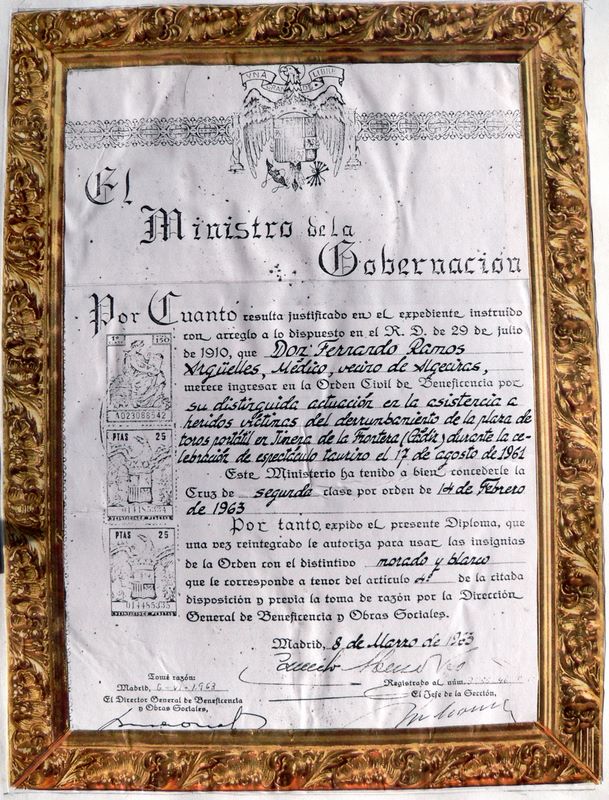 UNA
GRANDE
LIBRE
El
Ministro de la
Gobernación
Por Cuanto resulta justificado en el expediente instruido
con arreglo a lo dispuesto en el R. D. de 29 de julio
de 1910, que Don Fernando Ramos
Argüelles, Médico, vecino de Algeciras,
merece ingresar en la Orden Civil de Beneficencia por
su distinguida actuación en la asistencia a
heridos víctimas del derrumbamiento de la plaza de
toros portátil en Jimena de la Frontera (Cádiz) durante la ce-
lebración de espectáculo taurino el 17 de agosto de 1961
Este Ministerio ha tenido a bien concederle la
Cruz de segunda clase por orden de 14 de Febrero
de 1963
Por tanto, expido el presente Diploma, que
una vez reintegrado le autoriza para usar las insignias
de la Orden con el distintivo morado y blanco
que le corresponde a tenor del artículo 4º de la citada
disposición y previa la toma de razón por la Dirección
General de Beneficencia y Obras Sociales.
Madrid, 8 de Marzo de 1963
Tomé razón:
Madrid, 6-VI-1963
El Director General de Beneficencia
y Obras Sociales,
Registrado al núm.
El Jefe de la Sección,
1ª
150
A023088542
PTAS 25
014485334
PTAS 25
014485335